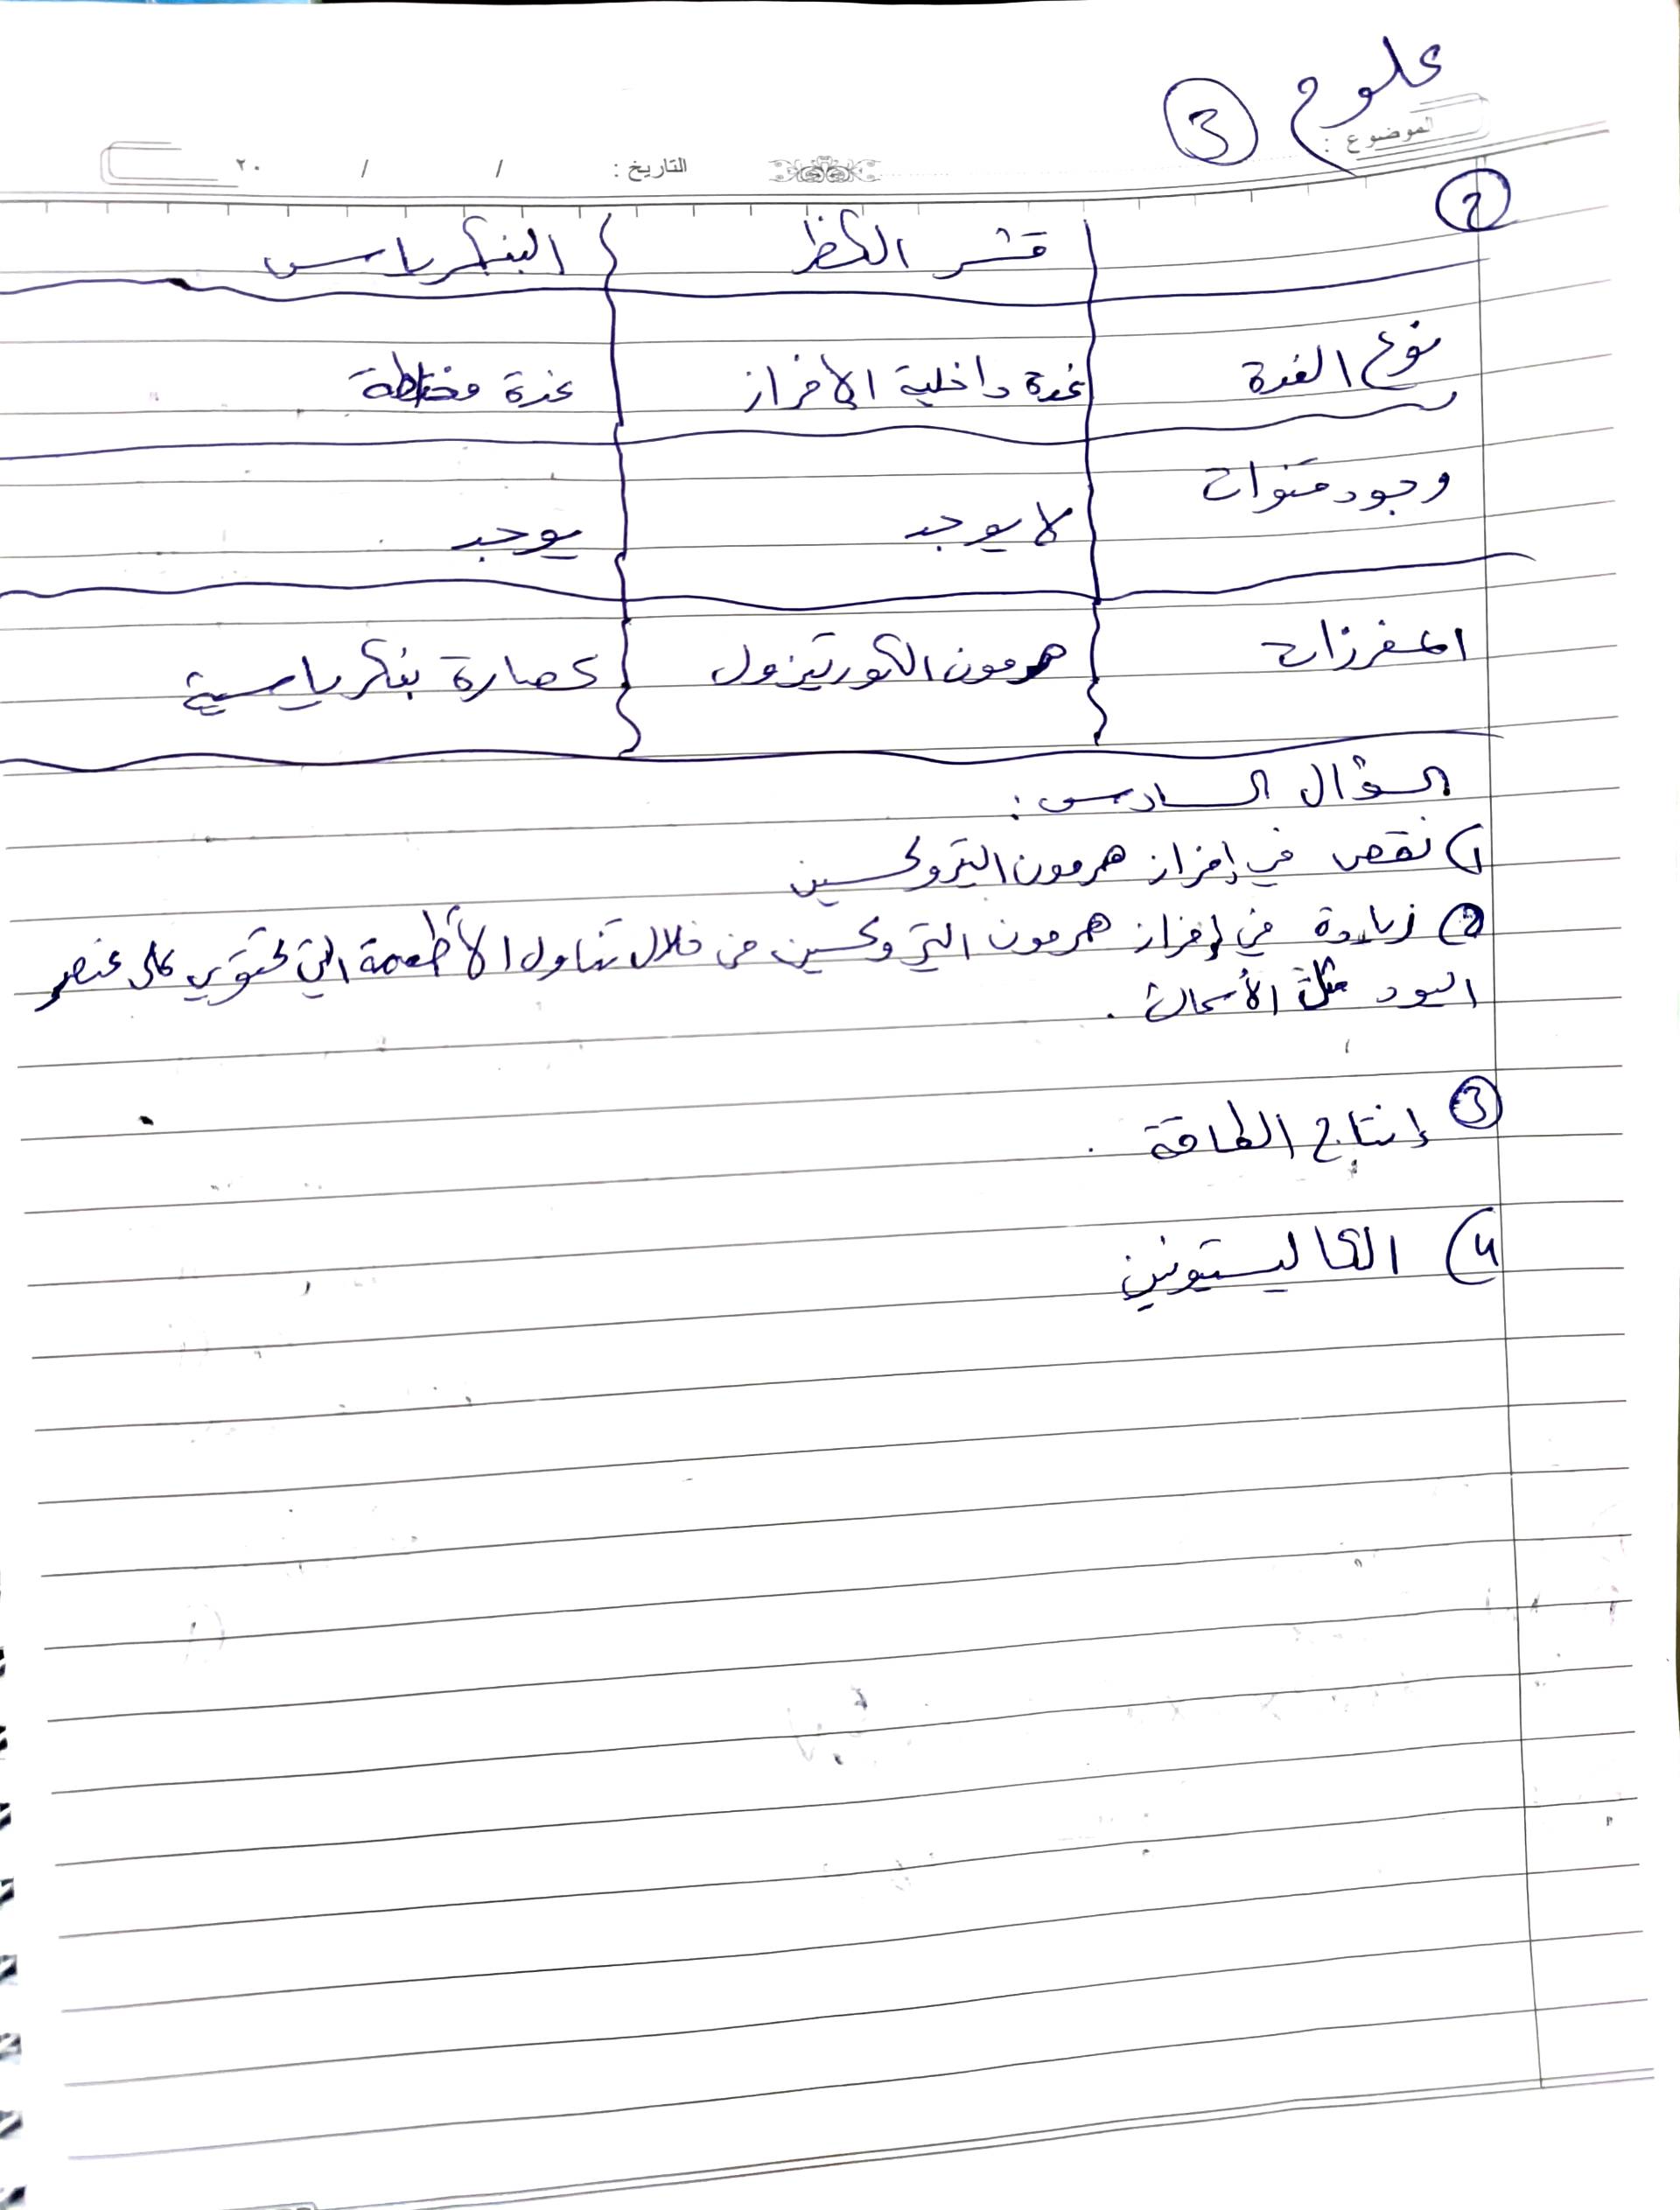 علوم ③
الموضوع :
التاريخ : / / ٢٠
②
قشر الكظر البنكرياس
نوع الغدة غدة داخلية الإفراز غدة مختلطة
وجود قنوات لا يوجد يوجد
المفرزات هرمون الكورتيزول عصارة بنكرياسية
السؤال السادس :
1) نقص في إفراز هرمون التيروكسين
2) زيادة في إفراز هرمون التيروكسين من خلال تناول الأطعمة التي تحتوي على عنصر
اليود مثل الأسماك .
③ إنتاج الطاقة .
4) الكاليستونين